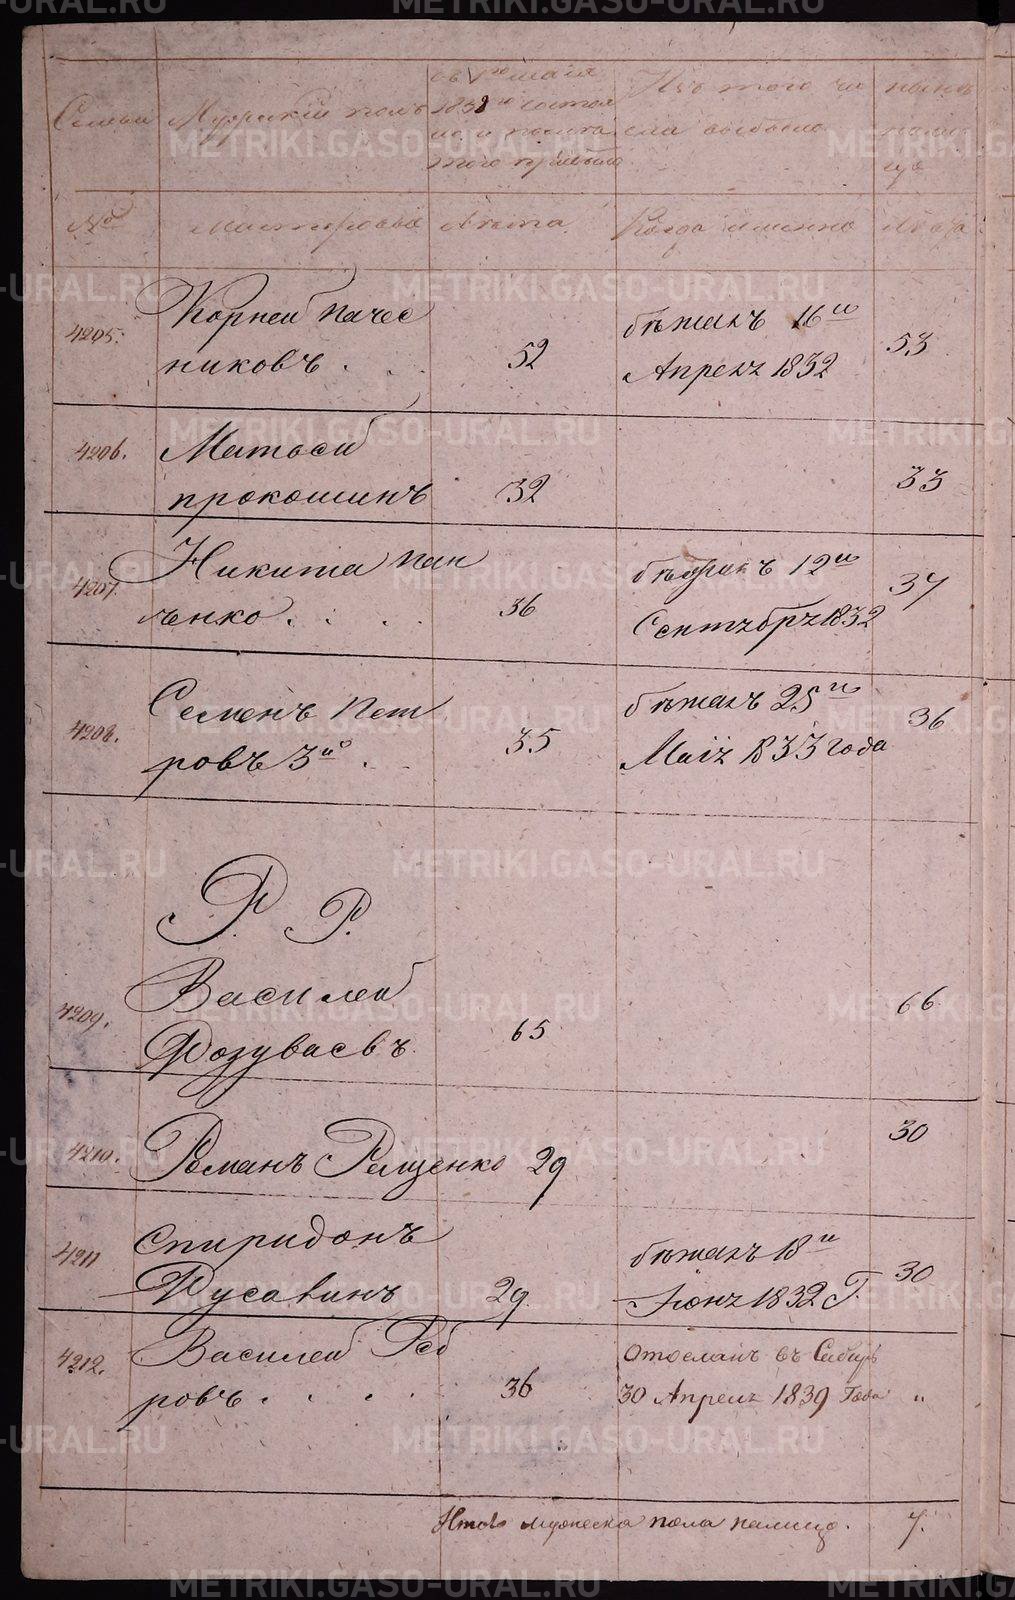 Семьи Мужескій полъ
съ 1го маія
1838го состоя
ло и после
того прибыло
Изъ того чи
сла выбыло
нынѣ
на ли
цо
№ Мастеровые Лѣта Когда именно Лѣта
4205. Корней Качес
никовъ . . . 52
бѣжалъ 16го
Апреля 1832
53
4206. Матвей
прокошинъ 32 33
4207. Никита пан
ченко . . . . 36
бѣжалъ 12го
Сентября 1832
37
4208. Семенъ пет
ровъ 3й . 35
бѣжалъ 25го
Маія 1833 года
36
Р. Р.
4209. Василей
Розуваевъ 65 66
4210. Романъ Рещенко 29 30
4211 Спиридонъ
Русавинъ 29
бѣжалъ 18го
Іюня 1832 Г.
30
4212. Василей Реб
ровъ . . . . 36
Отосланъ въ Сибирь
30 Апреля 1839 Года "
Итого мужеска пола налицо. 7.
METRIKI.GASO-URAL.RU